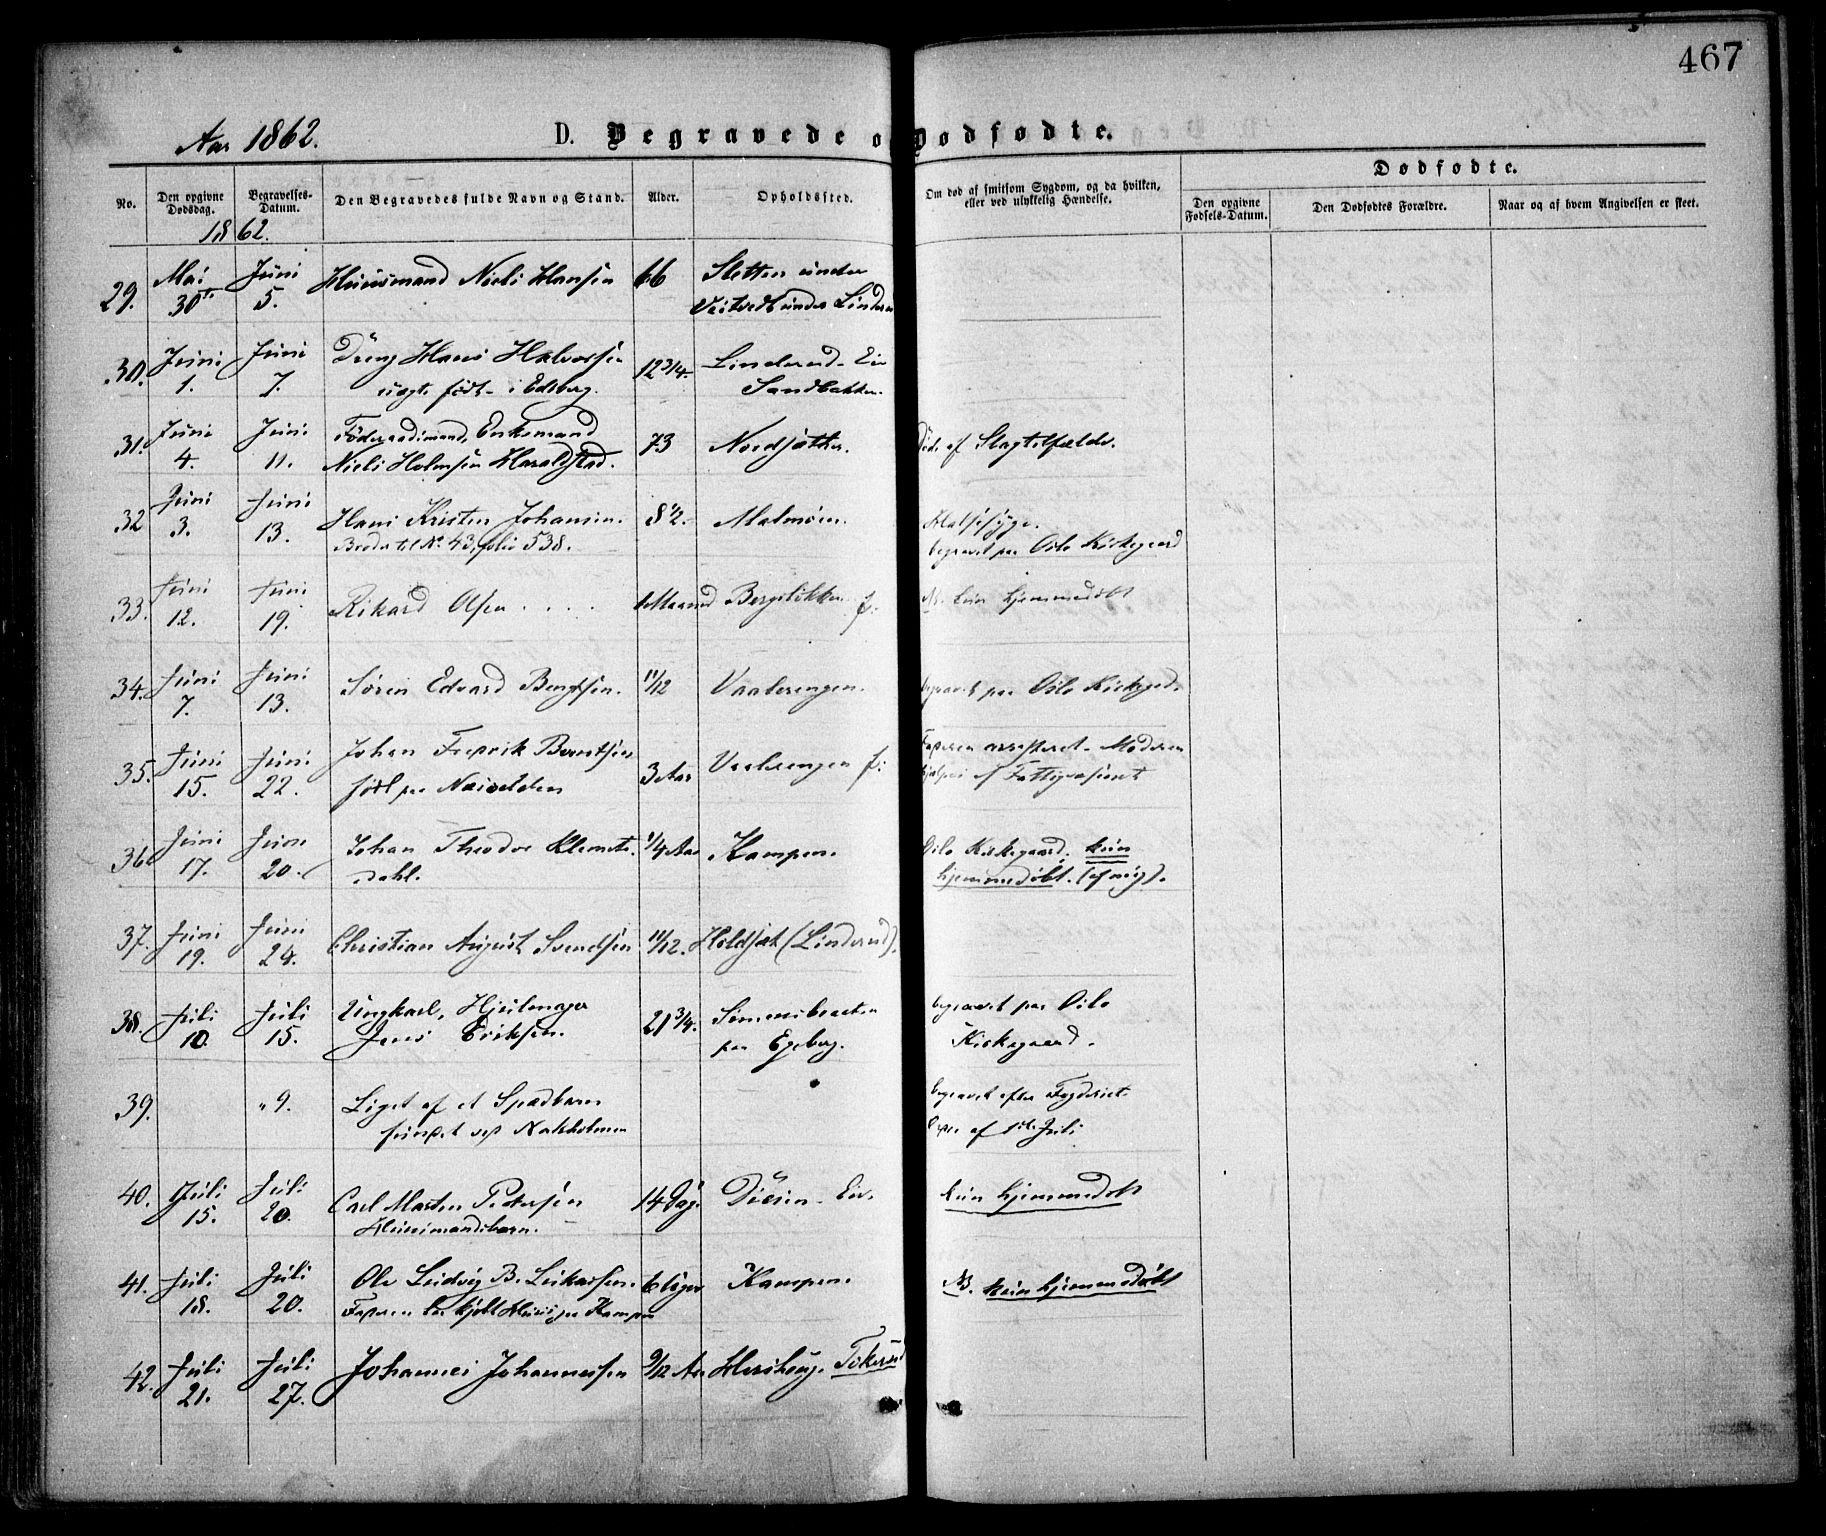 467
Aar 1862. D. Begravede o Dødfødte.
No. Den opgivne Dødsdag. Begravelses-Datum. Den Begravedes fulde Navn og Stand. Alder. Opholdssted. Om død af smitsom Sygdom, og da hvilken, eller ved ulykkelig Hændelse. Dødfødte.
Den opgivne Fødsels-Datum. Den Dødfødtes Forældre. Naar og af hvem Angivelsen er skeet.
1862.
29. Mai 30te Juni 5. Huusmand Niels Hansen 66 Sletten under
Veitvedt under Linderu
30. Juni 1. Juni 7. Dreng Hans Halvorsen 12 3/4. Linderud Eie
uægte født i Edsberg. Sandbakken.
31. Juni 4. Juni 11. Føderaadsmand, Enkemand 73 Nordsæther. Død af Slagtilfælde.
Niels Holmsen Haraldstad.
32 Juni 3. Juni 13. Hans Kristen Johansen. 8 1/2. Malmøen. Halssyge.
Broder til No 43, folio 538. begravet paa Oslo Kirkegaard
33. Juni 12. Juni 19. Rikard Olsen .... 1 Maaned Bergsløkken f: N. kun hjemmedøbt
34. Juni 7. Juni 13. Søren Edvard Bengtsen. 11/12 Vaalerengen. begravet paa Oslo Kirkegd.
35. Juni 15. Juni 22. Johan Fredrik Berntsen 3 Aar Vaalerengen f: Faderen arresteret. Moderen
født paa Næsodden hjelpes af Fattigvæsenet
36 Juni 17. Juni 20. Johan Theodor Klemets- 1/4 Aar Kampen. Oslo Kirkegaard. kun
dahl. hjemmedøbt. (af mig).
37. Juni 19. Juni 24. Christian August Svendsen 11/12. Holdsæt (Linderud).
38. Juli 10. Juli 15. Ungkarl, Hjulmager 21 3/4. Simensbraaten begravet paa Oslo
Jens Eriksen. paa Egeberg. Kirkegaard.
39. " 9. Liget af et Spædbarn begravet efter Fogderiet
fundet ved Nakholmen af 1ste Juli
40. Juli 15. Juli 20. Carl Marten Petersen 14 Dag. Disen Eie. kun hjemmedøbt
Huusmandsbarn.
41. Juli 18. Juli 20. Ole Ludvig B. Lukassen. 6 Uger Kampen. NB. kun hjemmedøbt
Faderen har kjøbt Huus paa Kampen
42. Juli 21. Juli 27. Johannes Johannessen 9/12 Aar Tokerud